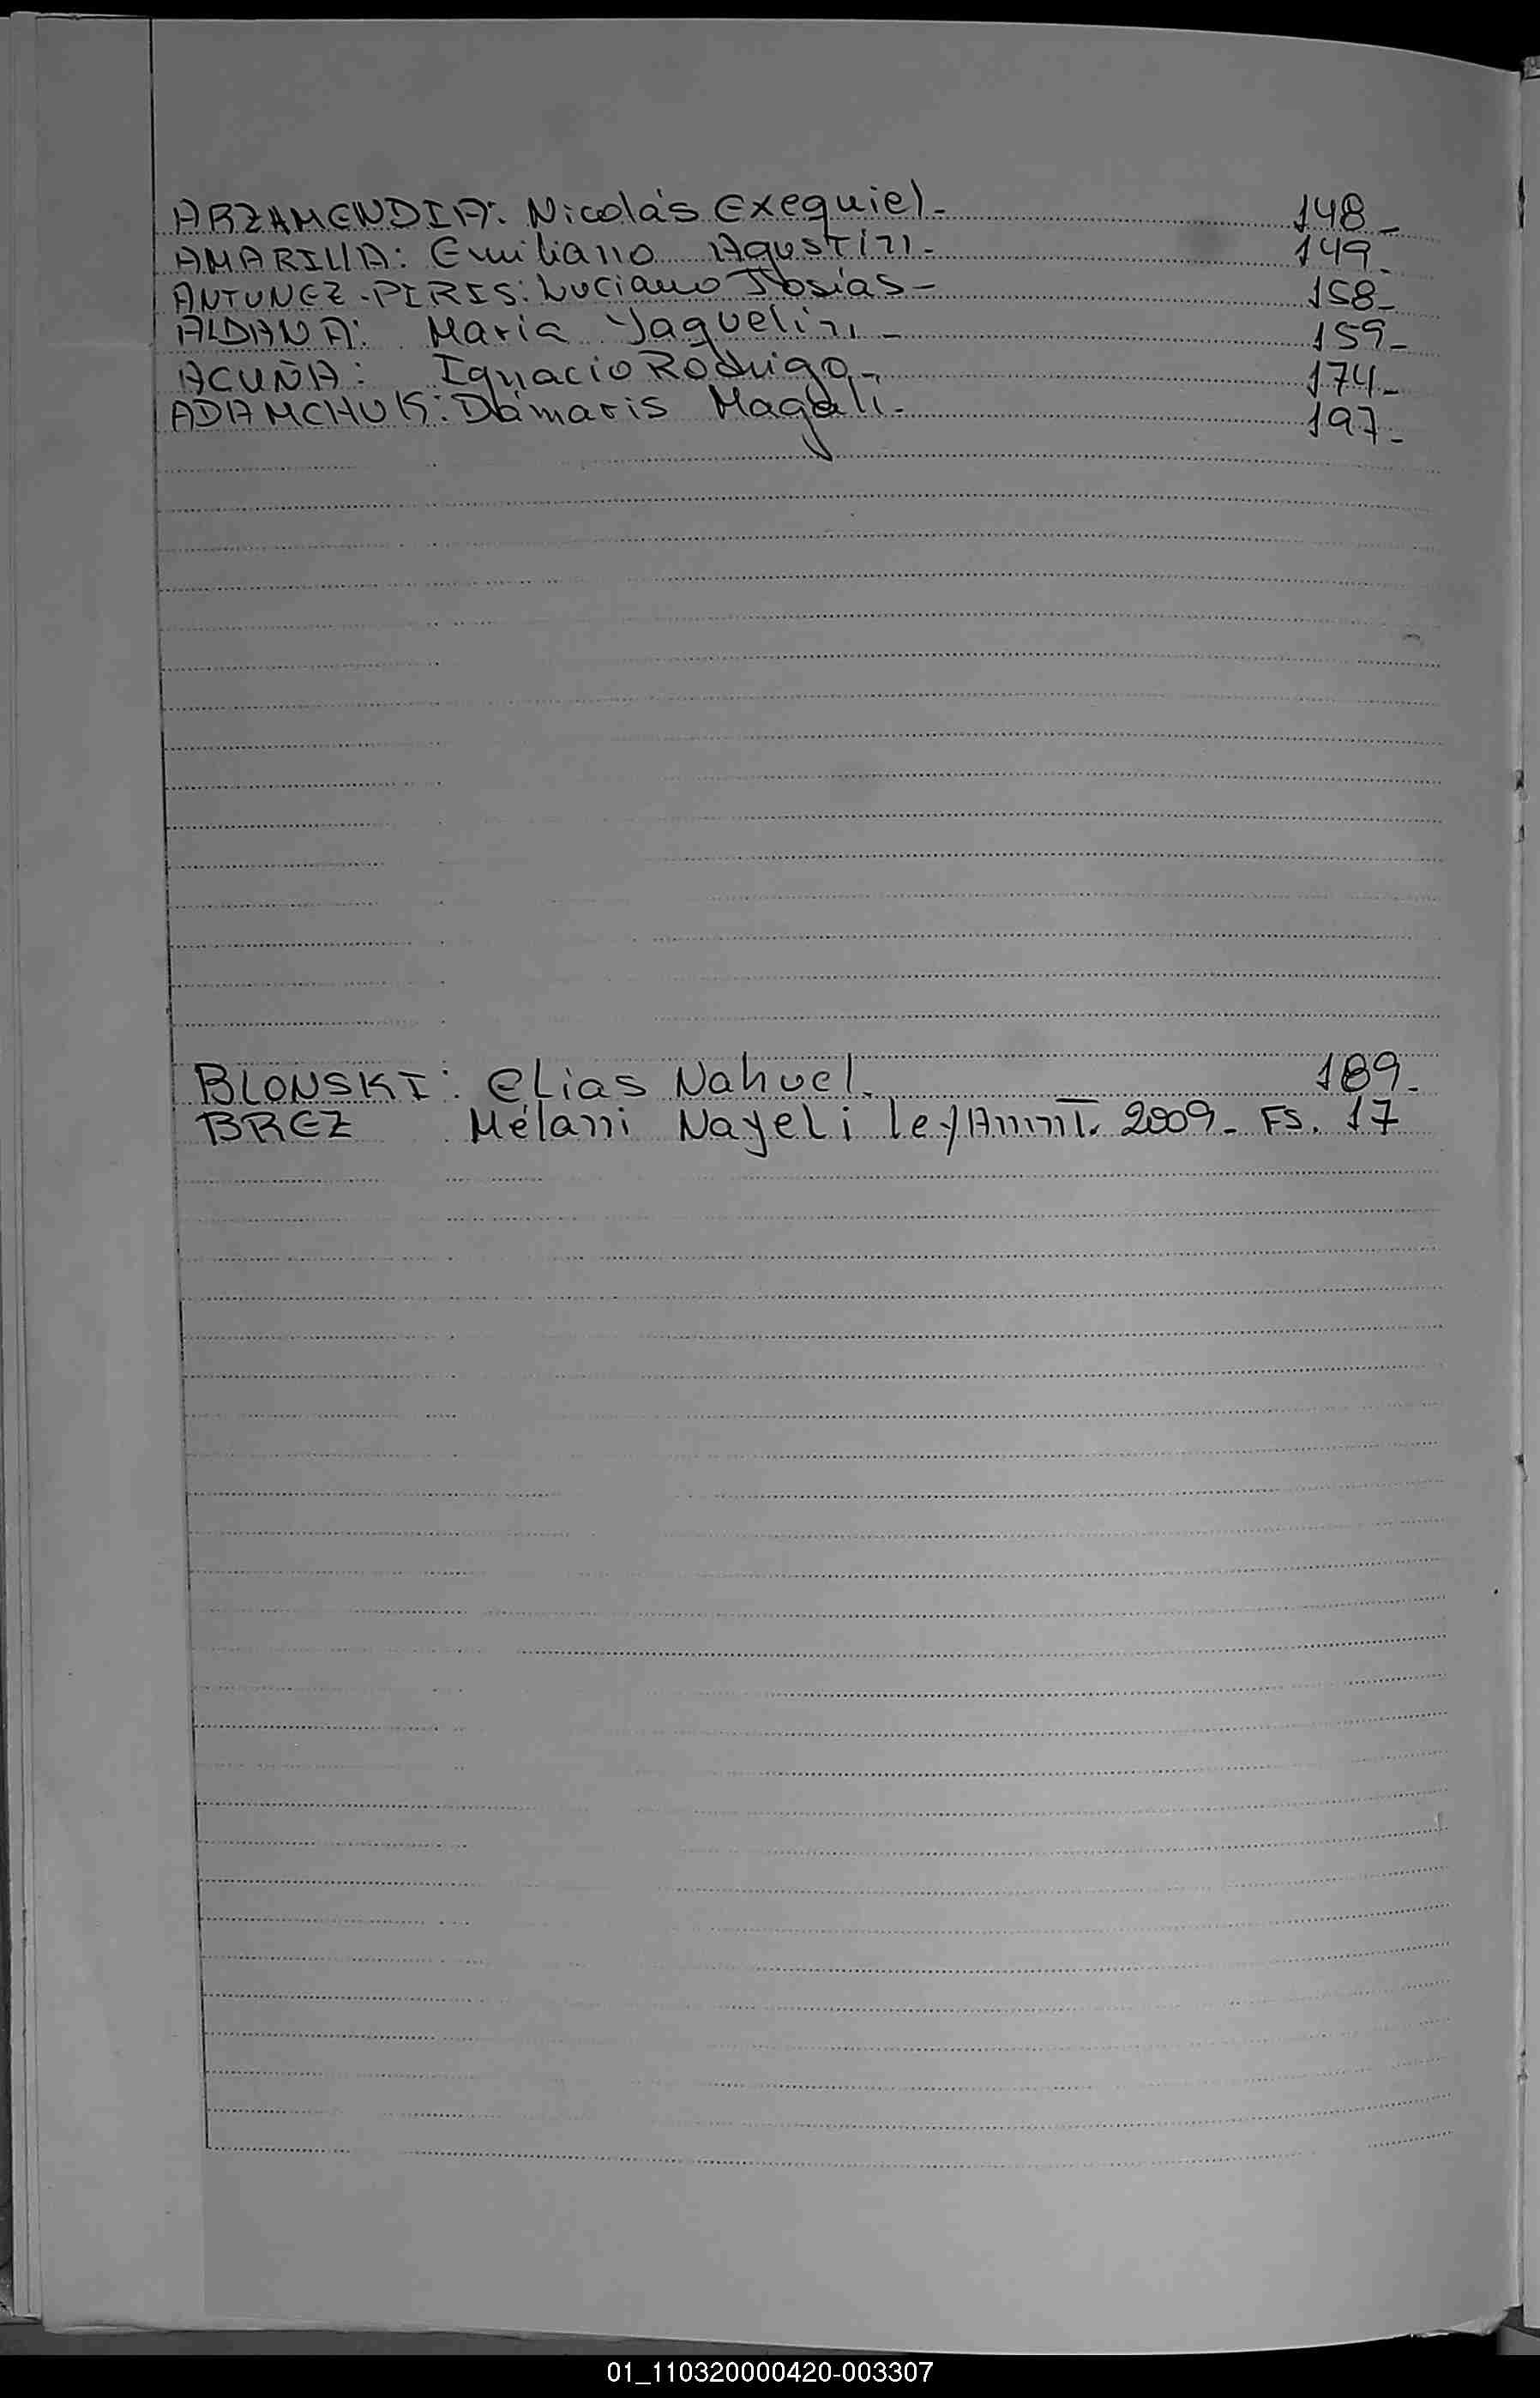 ARZAMENDIA: Nicolás Exequiel- 148-
AMARILLA: Emiliano Agustín- 149-
ANTUNEZ-PERIS: Luciano Josías- 158-
ALDANA: Maria Yaquelin- 159-
ACUÑA: Ignacio Rodrigo.- 174-
ADAMCHUK: Dámaris Magali.- 197-
BLONSKI: Elias Nahuel. 189-
BREZ Mélani Nayeli 2009- FS. 17
01_110320000420-003307